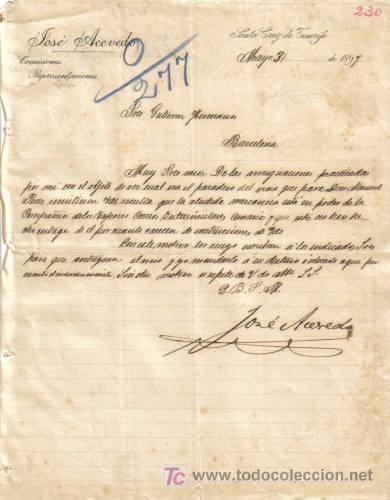 230
José Acevedo
Comisiones
Representaciones
0/277
Santa Cruz de Tenerife
Mayo 31 de 1897
Sres Gutierrez Hermanos
Barcelona
Muy Sres mios: De las averiguaciones practicadas
por mi con el objeto de ver cual era el paradero del vino que para Don Manuel
remitieron Vds resulta que la aludida mercancia está en poder de la
Compañia de los Vapores Correos Interinsulares Canarios y que esta no ha
hecho entrega de el por cuanto carecen de instrucciones de Vds
Con este motivo les ruego escriban a los indicados Sres
para que entreguen el vino y yo mandarlo a su destino o dejarlo aqui por
cuenta Sin otro motivo se repite de V. atto S.S.
Q.B.S.M.
José Acevedo
TC www.todocoleccion.net